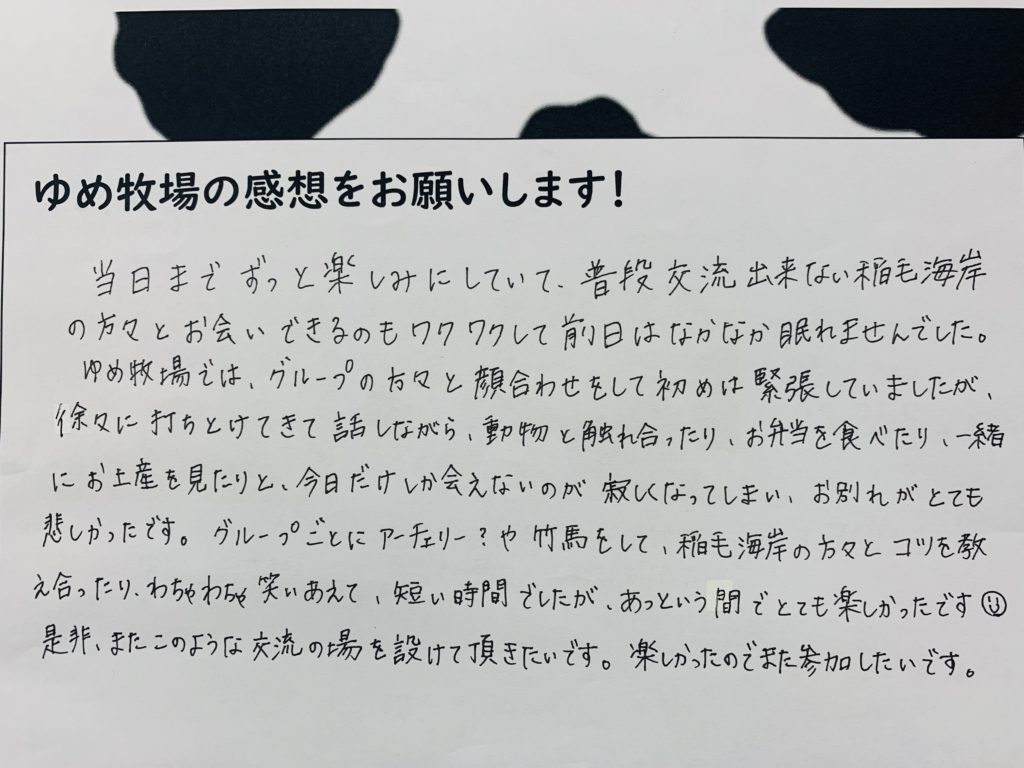 ゆめ牧場の感想をお願いします!
当日まで ずっと楽しみにしていて、普段交流出来ない稲毛海岸
の方々とお会いできるのもワクワクして前日はなかなか眠れませんでした。
ゆめ牧場では、グループの方々と顔合わせをして初めは緊張していましたが、
徐々に打ちとけてきて話しながら、動物と触れ合ったり、お弁当を食べたり、一緒
にお土産を見たりと、今日だけしか会えないのが寂しくなってしまい、お別れがとても
悲しかったです。グループごとにアーチェリー?や竹馬をして、稲毛海岸の方々とコツを教
え合ったり、わちゃわちゃ笑いあえて、短い時間でしたが、あっという間でとても楽しかったです☺
是非、またこのような交流の場を設けて頂きたいです。楽しかったのでまた参加したいです。